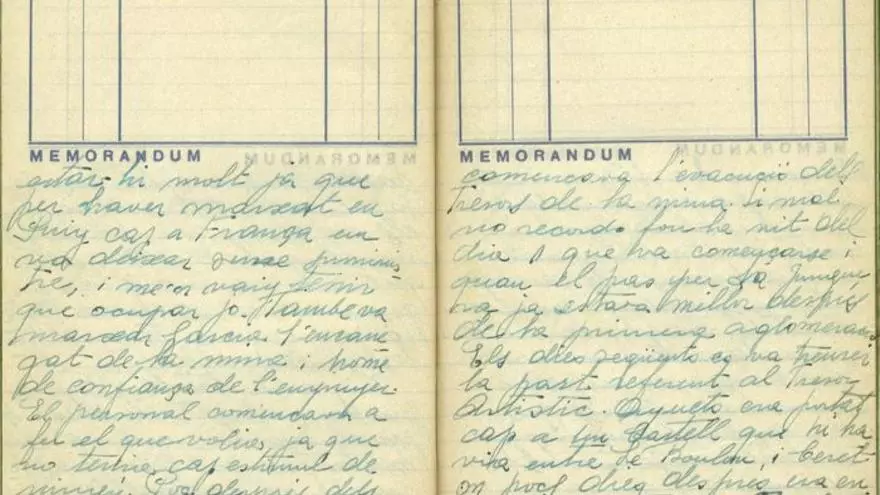 MEMORANDUM
estar-hi molt ja que
per haver marxat en
Puig cap a França em
va deixar sense suminis
tre, i me'n vaig tenir
que ocupar jo. Tambe va
marxar Garcia l'encarre
gat de la mina i home
de confiança de l'enginyer.
El personal començava a
fer el que volia, ja que
no tenia cap estimul de
ningú. Poc després dels
MEMORANDUM
començava l'evacució dels
tresors de la mina. Si mal
no recordo fou la nit del
dia 1 que va començarse i
quan el pas per la Junque
ra ja estava millor després
de la primera aglomeració
Els dies següents es va treurer
la part referent al Tresor
Artistic. Aquets era portat
cap a un Castell que hi ha
via entre Le Boulou, i Ceret
on pocs dies després era en